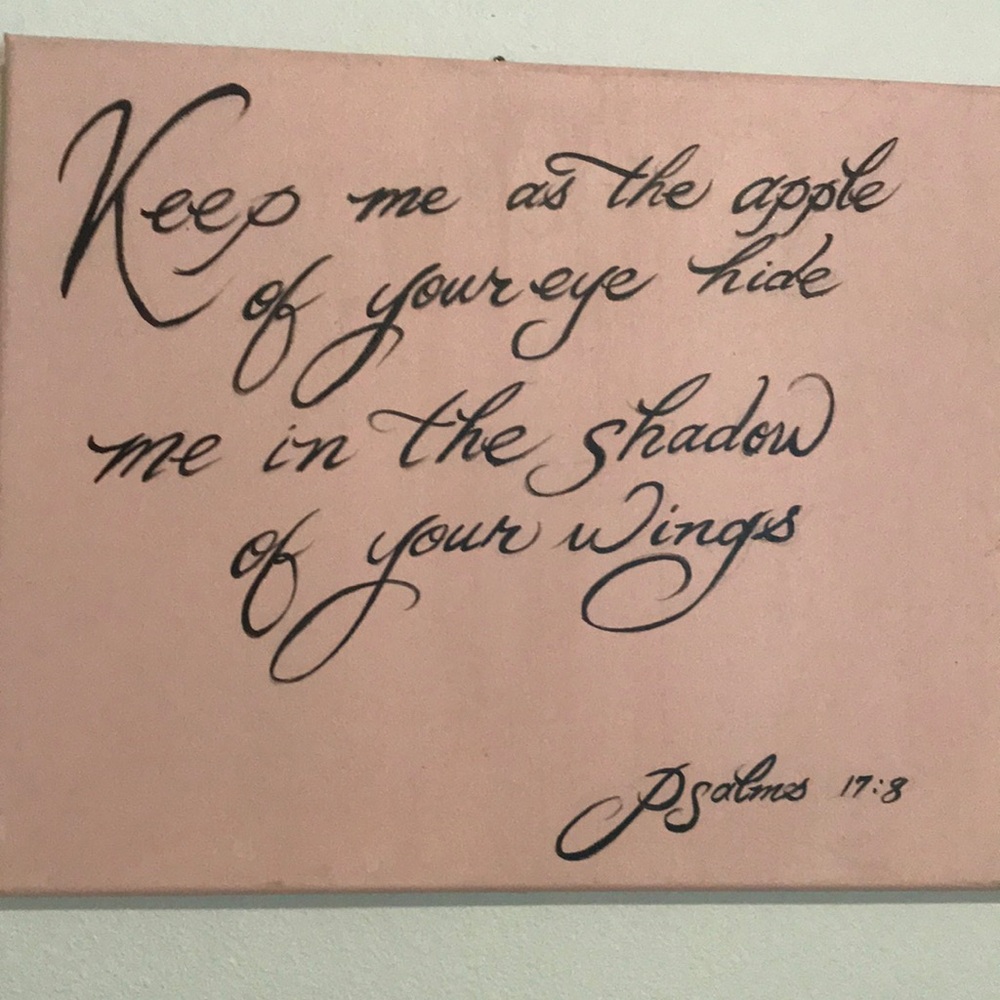 Keep me as the apple
of your eye hide
me in the shadow
of your wings
Psalms 17:8